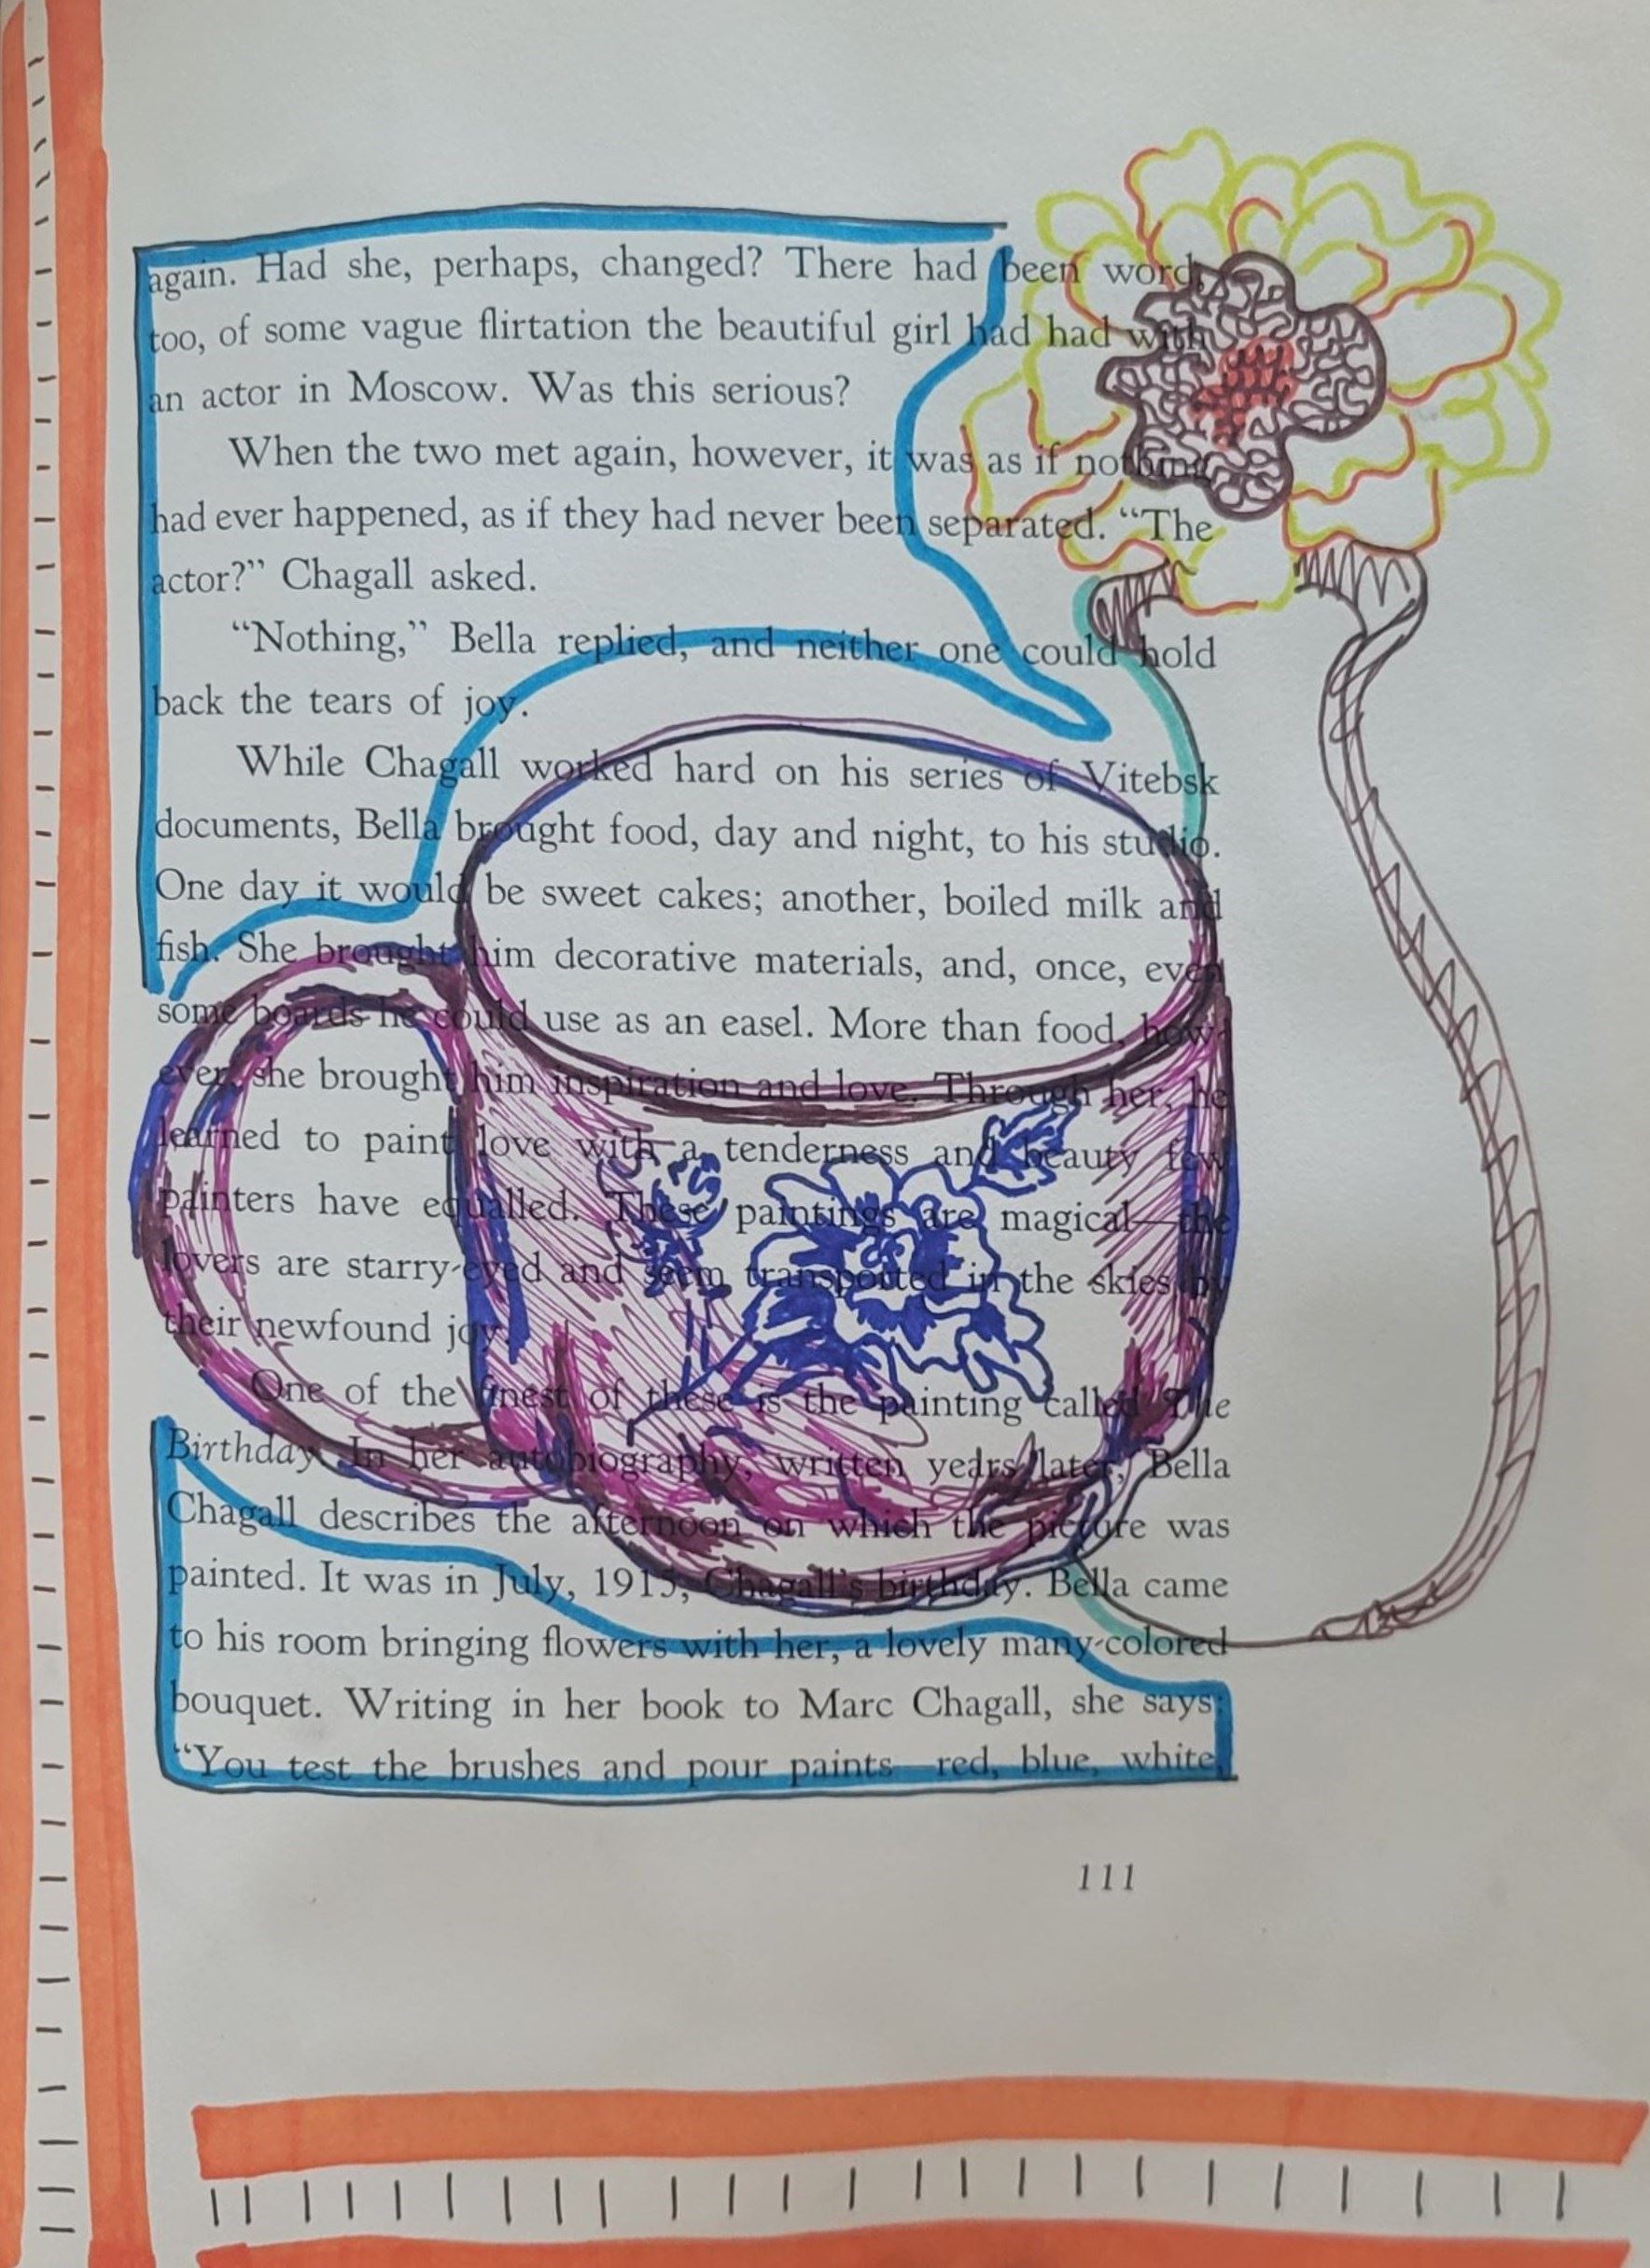 again. Had she, perhaps, changed? There had been word,
too, of some vague flirtation the beautiful girl had had with
an actor in Moscow. Was this serious?
When the two met again, however, it was as if nothing
had ever happened, as if they had never been separated. “The
actor?” Chagall asked.
“Nothing,” Bella replied, and neither one could hold
back the tears of joy.
While Chagall worked hard on his series of Vitebsk
documents, Bella brought food, day and night, to his studio.
One day it would be sweet cakes; another, boiled milk and
fish. She brought him decorative materials, and, once, even
some boards he could use as an easel. More than food, how-
ever, she brought him inspiration and love. Through her, he
learned to paint love with a tenderness and beauty few
painters have equalled. These paintings are magical—the
lovers are starry-eyed and seem transported in the skies by
their newfound joy.
One of the finest of these is the painting called The
Birthday. In her autobiography, written years later, Bella
Chagall describes the afternoon on which the picture was
painted. It was in July, 1915, Chagall’s birthday. Bella came
to his room bringing flowers with her, a lovely many-colored
bouquet. Writing in her book to Marc Chagall, she says:
“You test the brushes and pour paints—red, blue, white,
111